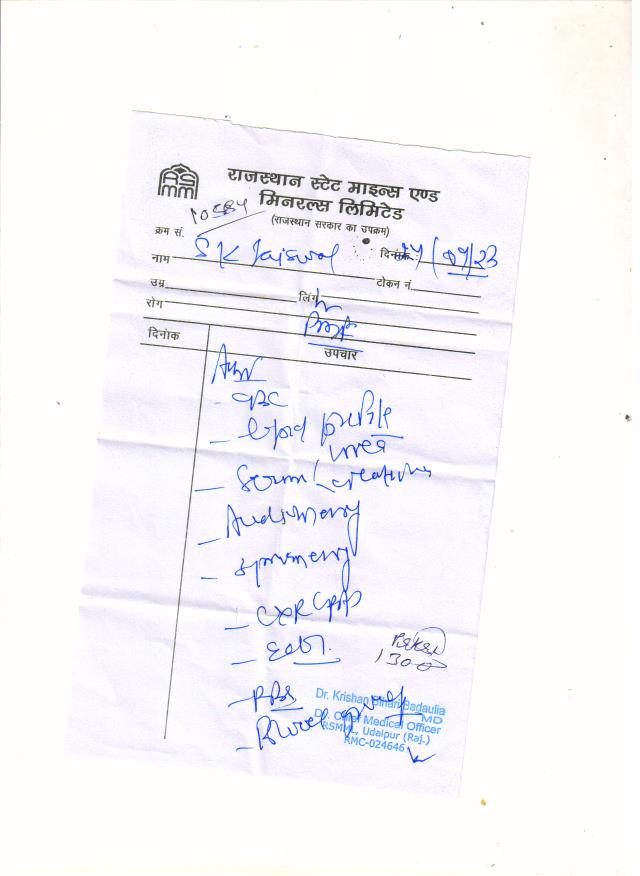 राजस्थान स्टेट माइन्स एण्ड
मिनरल्स लिमिटेड
(राजस्थान सरकार का उपक्रम)
RSMM
क्रम सं. 10584
नाम S K Jaiswal दिनांक: /23
उम्र लिंग टोकन नं.
रोग
दिनांक उपचार
- CBC
- Lipid profile
- Serum creatinine
- Audiometry
- Spirometry
- CXR (PA)
- ECG.
1300
- RBS
- Blood group
Dr. Krishan Bihari Badaulia
MD
Dy. Chief Medical Officer
RSMML, Udaipur (Raj.)
RMC-024646